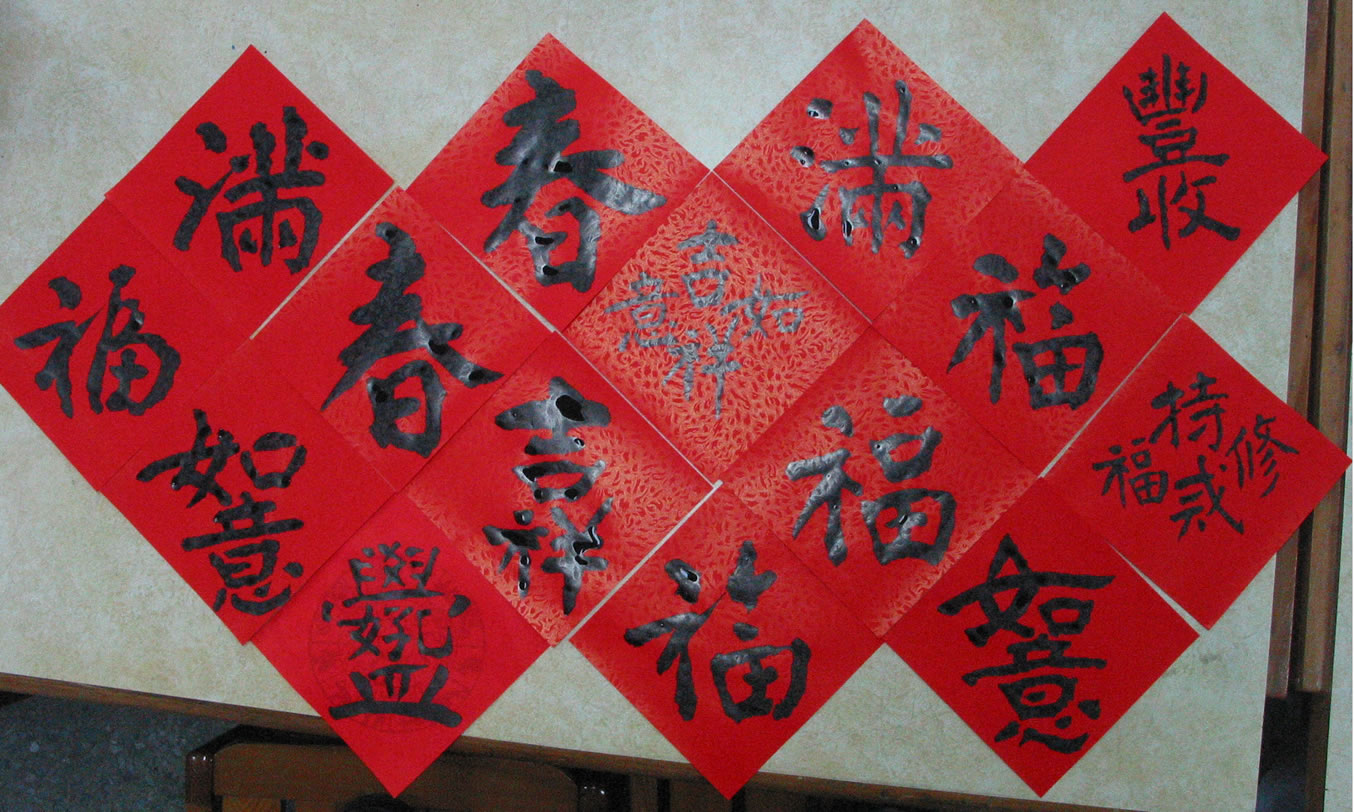 滿
春
滿
豐收
福
春
吉祥如意
福
如意
吉祥
福
修持福
學好孔孟
福
如意